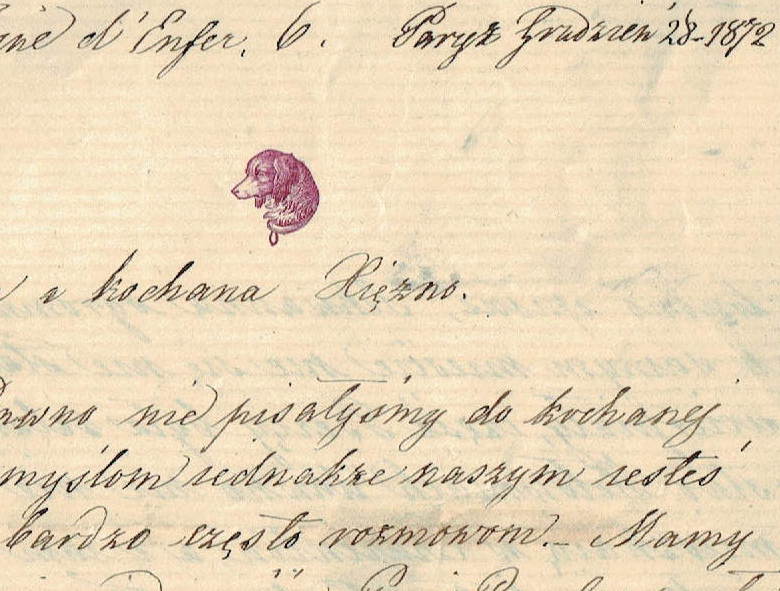 d'Enfer. 6. Paryż Grudzień 28-1872
a kochana Xiężno.
nie pisałyśmy do kochanej
myślom jednakże naszym jesteś
bardzo często rozmowom.- Mamy